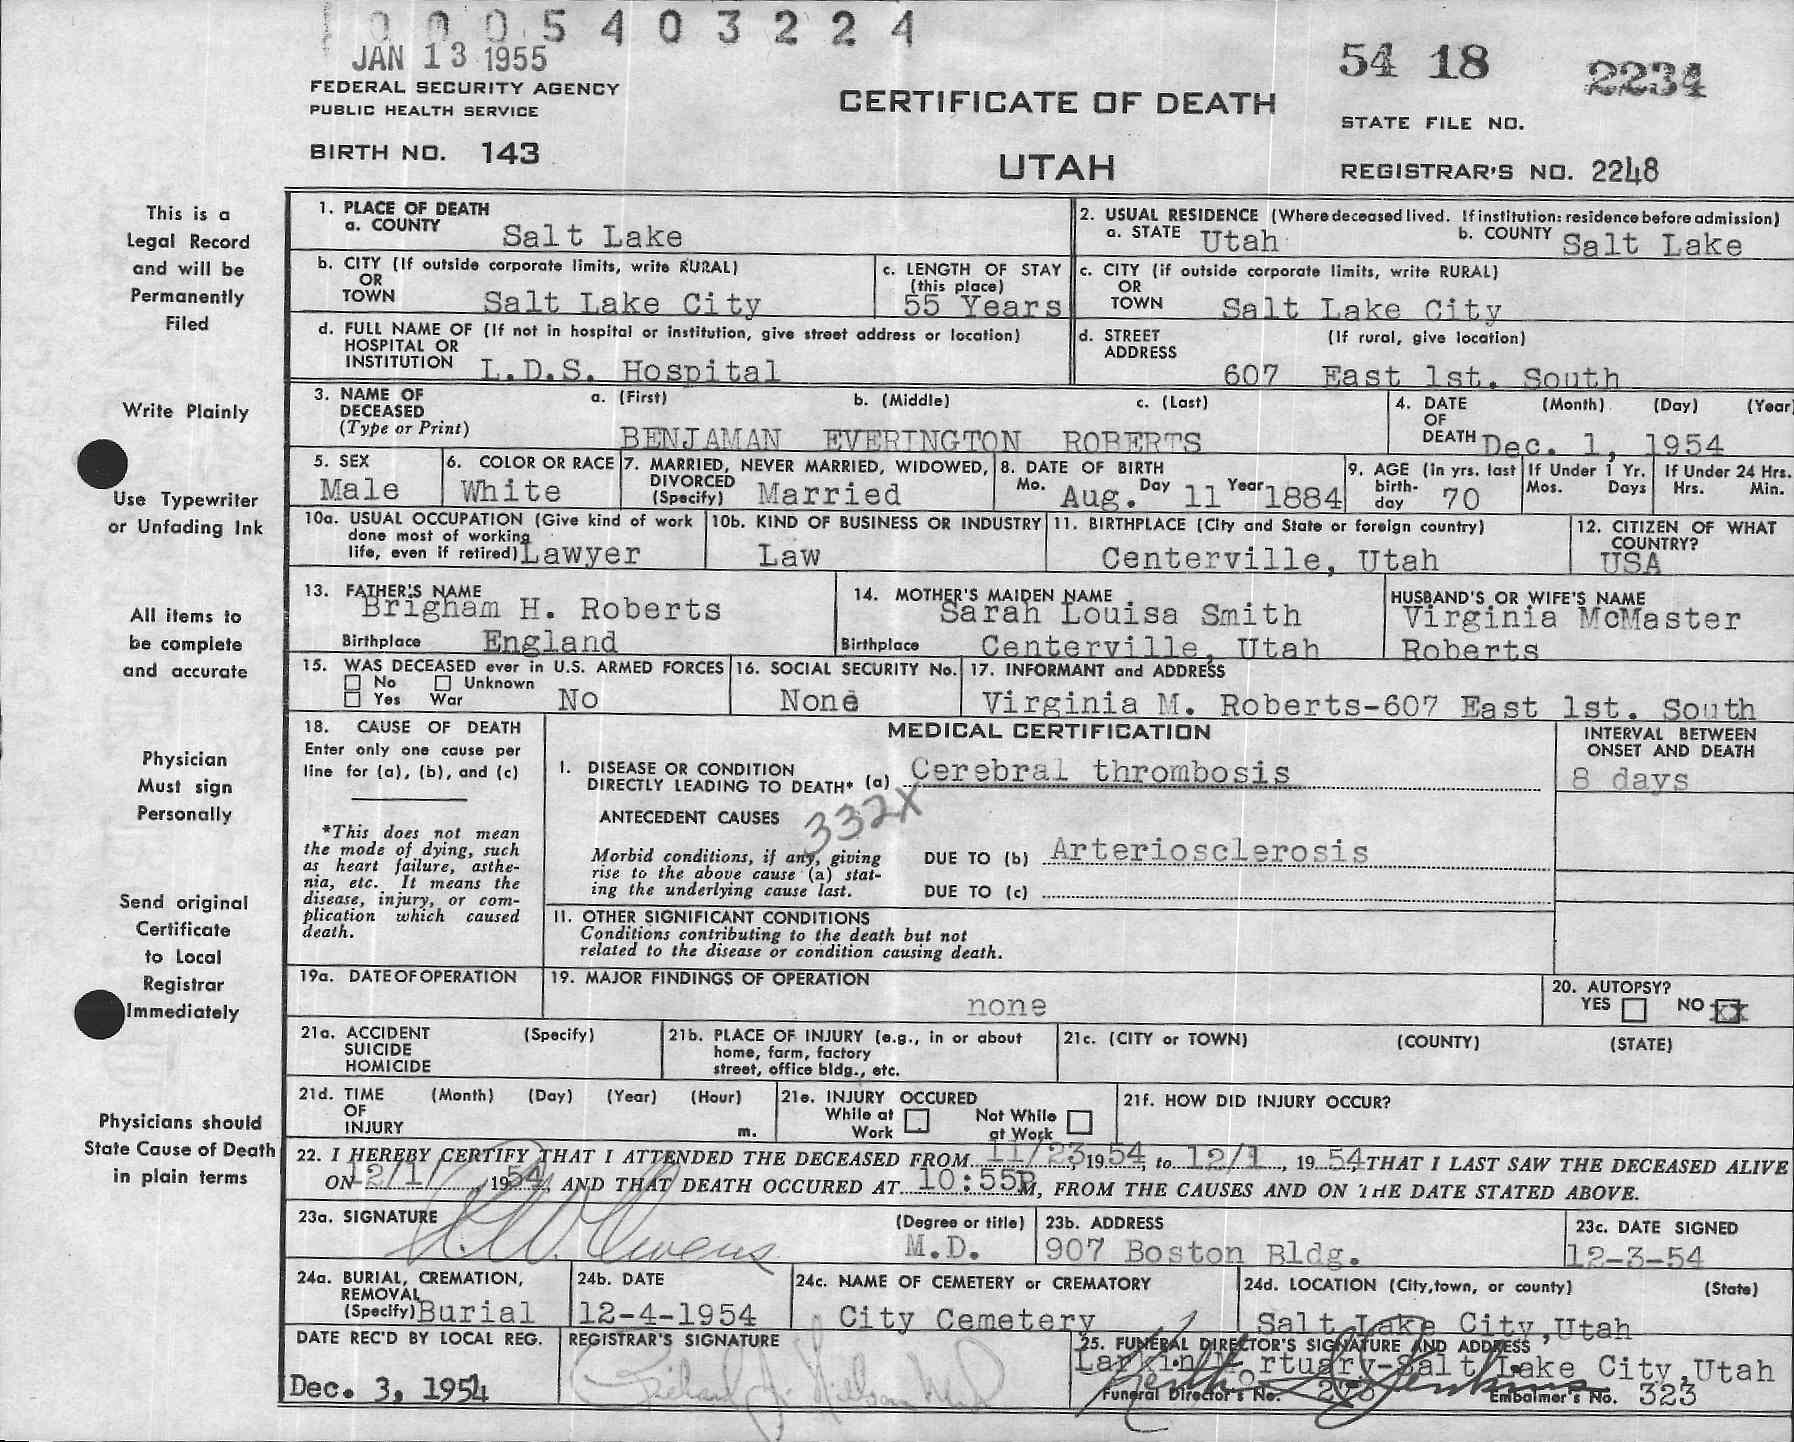 0005403224
JAN 13 1955
54 18 2234
FEDERAL SECURITY AGENCY
PUBLIC HEALTH SERVICE
CERTIFICATE OF DEATH
STATE FILE NO.
BIRTH NO. 143
UTAH
REGISTRAR'S NO. 2248
This is a
Legal Record
and will be
Permanently
Filed
Write Plainly
Use Typewriter
or Unfading Ink
All items to
be complete
and accurate
Physician
Must sign
Personally
Send original
Certificate
to Local
Registrar
Immediately
Physicians should
State Cause of Death
in plain terms
1. PLACE OF DEATH
a. COUNTY Salt Lake
2. USUAL RESIDENCE (Where deceased lived. If institution: residence before admission)
a. STATE Utah b. COUNTY Salt Lake
b. CITY (If outside corporate limits, write RURAL)
OR
TOWN Salt Lake City
c. LENGTH OF STAY
(this place)
55 Years
c. CITY (if outside corporate limits, write RURAL)
OR
TOWN Salt Lake City
d. FULL NAME OF (If not in hospital or institution, give street address or location)
HOSPITAL OR
INSTITUTION L.D.S. Hospital
d. STREET (If rural, give location)
ADDRESS
607 East 1st. South
3. NAME OF a. (First) b. (Middle) c. (Last)
DECEASED
(Type or Print) BENJAMAN EVERINGTON ROBERTS
4. DATE (Month) (Day) (Year
OF
DEATH Dec. 1, 1954
5. SEX
Male
6. COLOR OR RACE
White
7. MARRIED, NEVER MARRIED, WIDOWED,
DIVORCED
(Specify) Married
8. DATE OF BIRTH
Mo. Aug. Day 11 Year 1884
9. AGE (in yrs. last
birth-
day 70
If Under 1 Yr.
Mos. Days
If Under 24 Hrs.
Hrs. Min.
10a. USUAL OCCUPATION (Give kind of work
done most of working
life, even if retired) Lawyer
10b. KIND OF BUSINESS OR INDUSTRY
Law
11. BIRTHPLACE (City and State or foreign country)
Centerville, Utah
12. CITIZEN OF WHAT
COUNTRY?
USA
13. FATHER'S NAME
Brigham H. Roberts
Birthplace England
14. MOTHER'S MAIDEN NAME
Sarah Louisa Smith
Birthplace Centerville, Utah
HUSBAND'S OR WIFE'S NAME
Virginia McMaster
Roberts
15. WAS DECEASED ever in U.S. ARMED FORCES
No Unknown
Yes War No
16. SOCIAL SECURITY No.
None
17. INFORMANT and ADDRESS
Virginia M. Roberts-607 East 1st. South
18. CAUSE OF DEATH
Enter only one cause per
line for (a), (b), and (c)
*This does not mean
the mode of dying, such
as heart failure, asthe-
nia, etc. It means the
disease, injury, or com-
plication which caused
death.
MEDICAL CERTIFICATION
INTERVAL BETWEEN
ONSET AND DEATH
I. DISEASE OR CONDITION
DIRECTLY LEADING TO DEATH* (a) Cerebral thrombosis
8 days
ANTECEDENT CAUSES
332X
Morbid conditions, if any, giving
rise to the above cause (a) stat-
ing the underlying cause last.
DUE TO (b) Arteriosclerosis
DUE TO (c)
II. OTHER SIGNIFICANT CONDITIONS
Conditions contributing to the death but not
related to the disease or condition causing death.
19a. DATE OF OPERATION
19. MAJOR FINDINGS OF OPERATION
none
20. AUTOPSY?
YES NO XX
21a. ACCIDENT (Specify)
SUICIDE
HOMICIDE
21b. PLACE OF INJURY (e.g., in or about
home, farm, factory
street, office bldg., etc.
21c. (CITY or TOWN) (COUNTY) (STATE)
21d. TIME (Month) (Day) (Year) (Hour)
OF
INJURY m.
21e. INJURY OCCURED
While at Not While
Work at Work
21f. HOW DID INJURY OCCUR?
22. I HEREBY CERTIFY THAT I ATTENDED THE DECEASED FROM 11/23, 1954, to 12/1, 1954 THAT I LAST SAW THE DECEASED ALIVE
ON 12/1/, 1954, AND THAT DEATH OCCURED AT 10:55P M, FROM THE CAUSES AND ON THE DATE STATED ABOVE.
23a. SIGNATURE (Degree or title)
Owens M.D.
23b. ADDRESS
907 Boston Bldg.
23c. DATE SIGNED
12-3-54
24a. BURIAL, CREMATION,
REMOVAL
(Specify) Burial
24b. DATE
12-4-1954
24c. NAME OF CEMETERY or CREMATORY
City Cemetery
24d. LOCATION (City, town, or county) (State)
Salt Lake City, Utah
DATE REC'D BY LOCAL REG.
Dec. 3, 1954
REGISTRAR'S SIGNATURE
Richard J. Nelson
25. FUNERAL DIRECTOR'S SIGNATURE AND ADDRESS
Larkin Mortuary-Salt Lake City, Utah
Funeral Director's No. Embalmer's No. 323